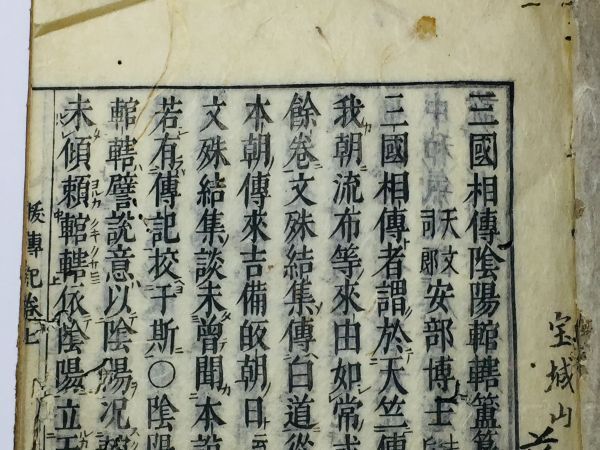 三國相傳陰陽輨轄簠簋
天文
司郎
安部博士
三國相傳者謂於天竺傳
我朝流布等來由如常式
餘卷文殊結集傳白道從
本朝傳來吉備皈朝日
文殊結集談未曾聞本說
若有傳記挍于斯〇陰陽
輨轄譬說意以陰陽況
未傾賴輨轄依陰陽立
傳記卷七
宝城山